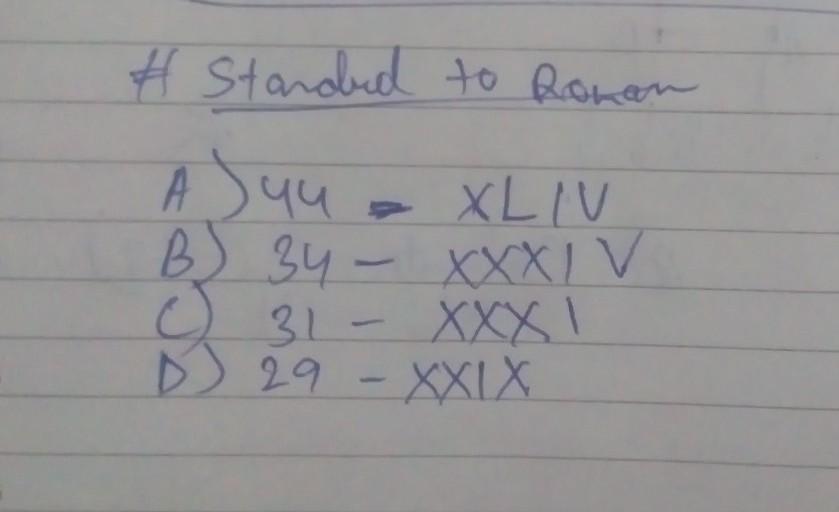 # Standard to Roman
A) 44 - XLIV
B) 34 - XXXIV
C) 31 - XXXI
D) 29 - XXIX